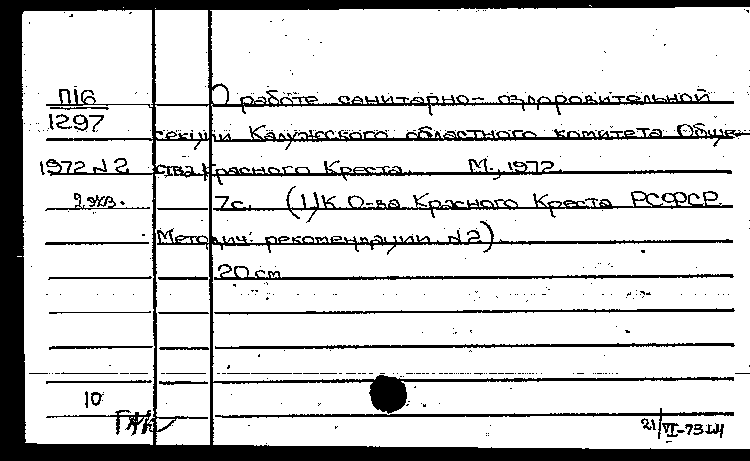 П16 О работе санитарно-оздоровительной
1297 секции Калужского областного комитета Обще-
1972 N2 ства Красного Креста. М., 1972.
2 экз. 7с. (ЦК О-ва Красного Креста РСФСР.
Методич. рекомендации N2)
20 см
10
21/VI-73